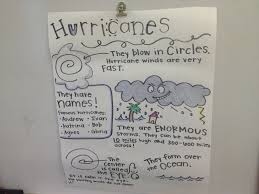 Hurricanes
They blow in Circles.
Hurricane winds are very
FAST.
They have
names!
Famous hurricanes:
- Andrew - Ivan
- Katrina - Bob
- Agnes - Gloria
They are ENORMOUS
storms. They can be about
10 miles high and
miles across!
The
Center is
called the
EYE
It is calm in the
They form over
the Ocean.